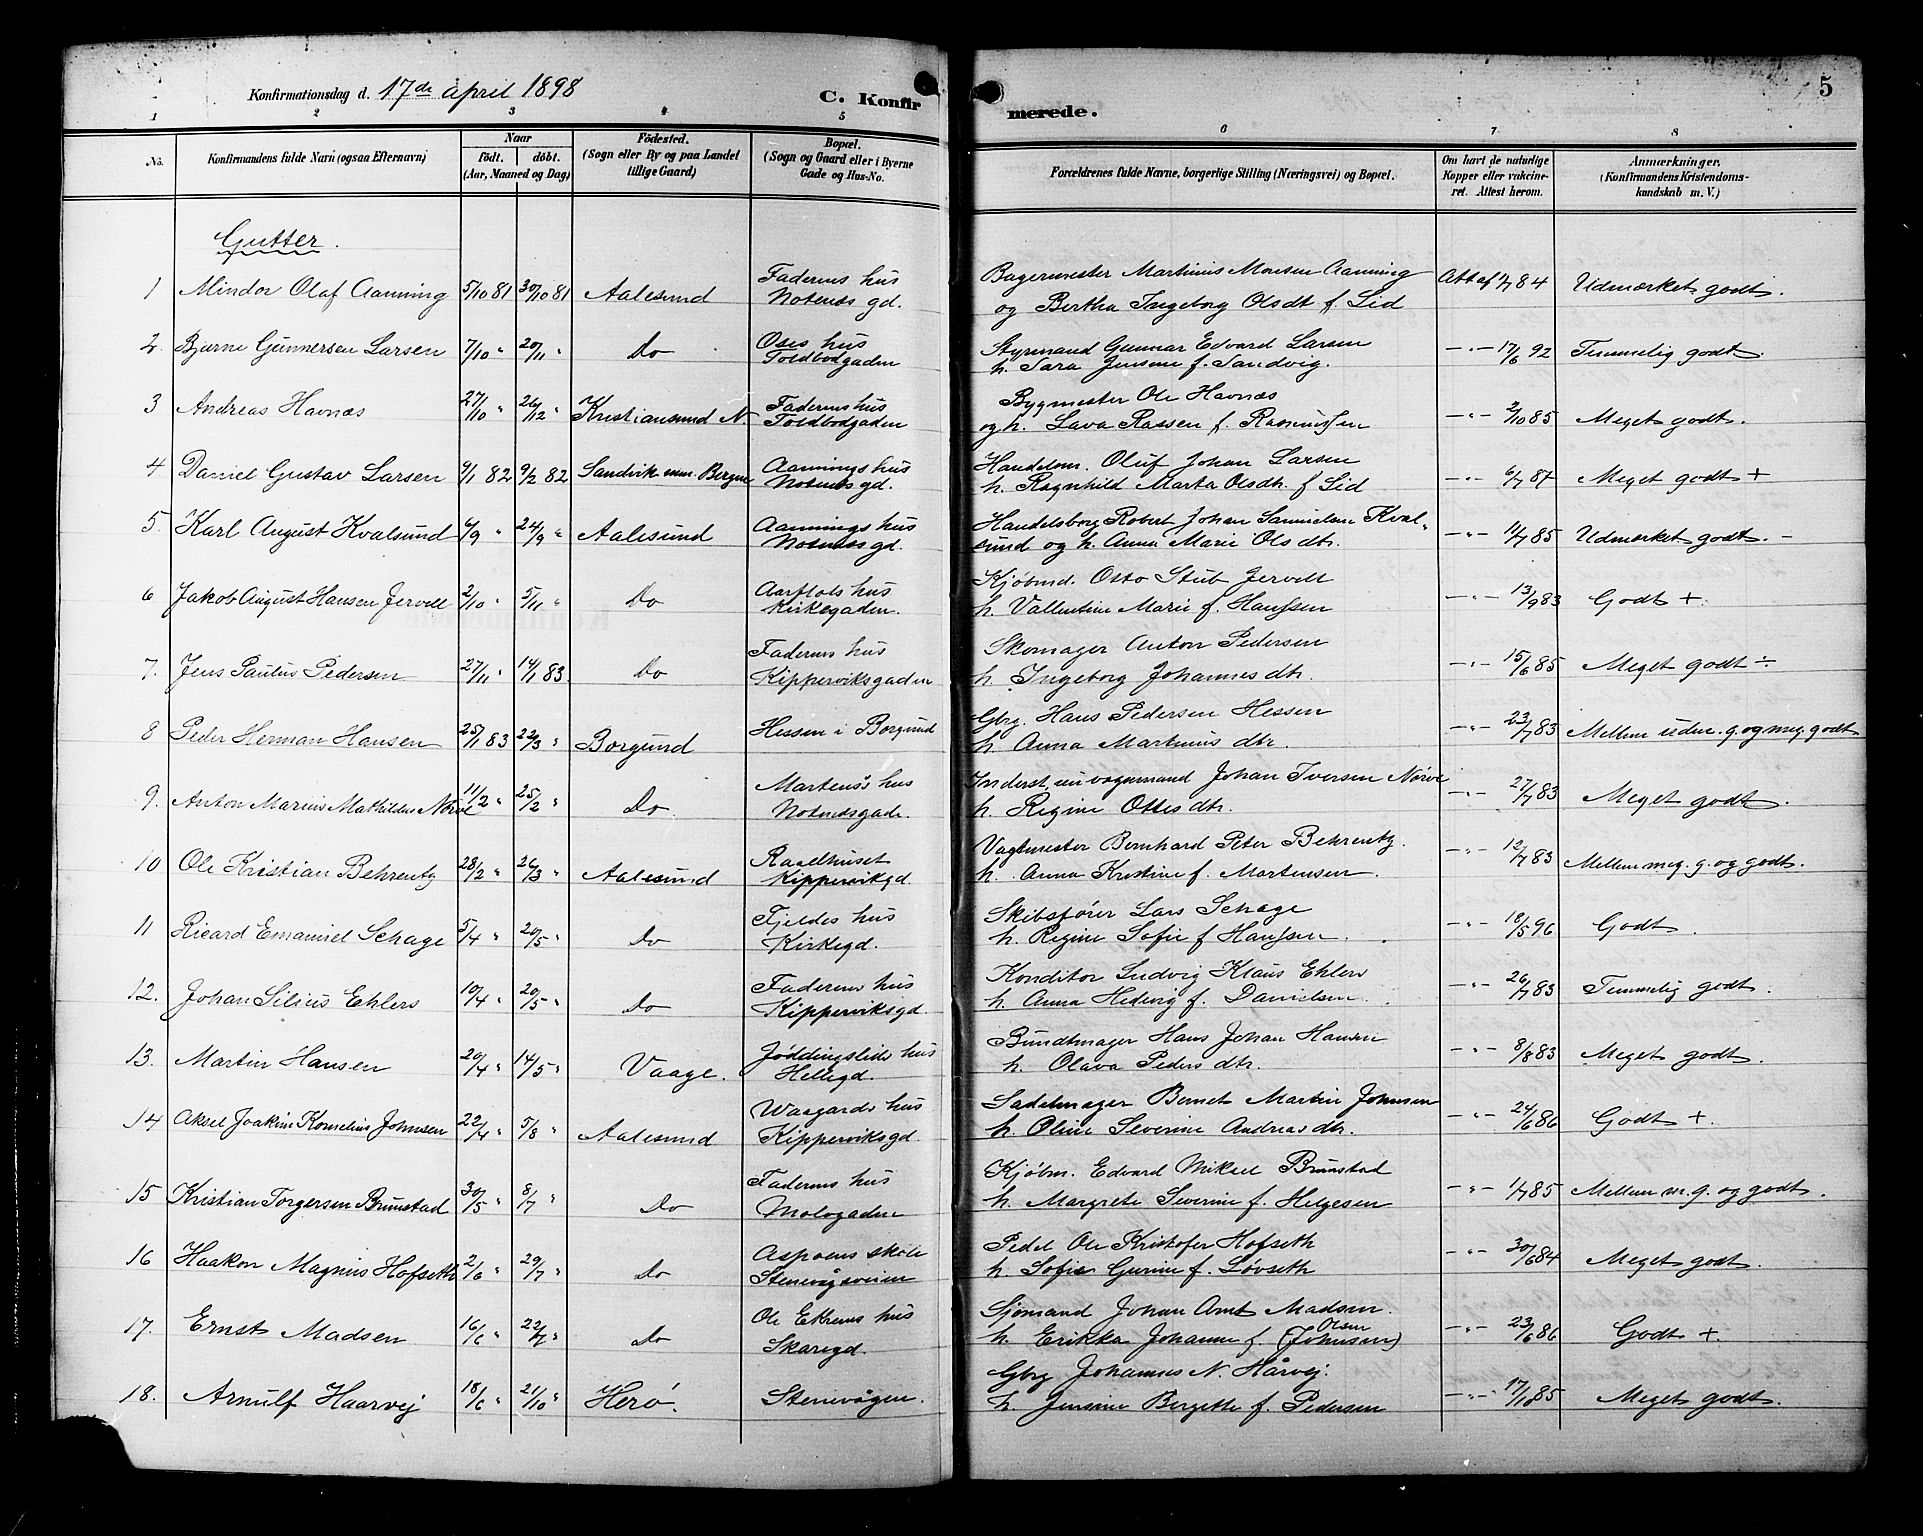 Konfirmationsdag d. 17de april 1898
C. Konfirmerede.
5
1 2 3 4 5 6 7 8
No.
Konfirmandens fulde Navn (ogsaa Efternavn)
Naar
födt. döbt.
(Aar, Maaned og Dag)
Födested.
(Sogn eller By og paa Landet
tillige Gaard)
Bopæl.
(Sogn og Gaard eller i Byerne
Gade og Hus-No.
Forældrenes fulde Navne, borgerlige Stilling (Næringsvei) og Bopæl.
Om havt de naturlige
Kopper eller vakcine-
ret. Attest herom.
Anmærkninger.
(Konfirmandens Kristendoms-
kundskab m. V.)
Gutter.
1 Mindor Olaf Aanning 5/10 81 30/10 81 Aalesund Faderens hus
Notenes gd.
Bagermester Martinus Monsen Aanning
og Bertha Ingeborg Olsdt f. Lid
Att af 84 Udmærket godt.
2. Bjarne Gunnersen Larsen 7/10 " 20/11 " Do Oses hus
Toldbodgaden
Styrmand Gunnar Edvard Larsen
h. Sara Jensine f. Sandvig.
-"- 17/6 92 Temmelig godt.
3 Andreas Havnæs 27/10 " 26/12 " Kristiansund N. Faderens hus
Toldbodgaden
Bygmester Ole Havnæs
og h. Lava Rassen f. Rasmussen
-"- 2/10 85 Meget godt.
4 Daniel Gustav Larsen 9/1 82 9/2 82 Sandvik Bergen Aannings hus
Notenes gd.
Handelsm. Oluf Johan Larsen
h. Ragnhild Marta Olsdt. f Lid
-"- 6/7 87 Meget godt +
5. Karl August Kvalsund 4/9 " 24/9 " Aalesund Aannings hus
Notenes gd.
Handelsborg Robert Johan Samuelsen Kval-
sund og h. Anna Marie Olsdtr.
-"- 11/7 85 Udmærket godt. -
6 Jakob August Hansen Jervell 2/10 " 5/11 " Do Aarflots hus
Kirkegaden.
Kjøbmd. Otto Stub Jervell
h. Vallentine Marie f. Hanssen
-"- 13/9 83 Godt +.
7. Jens Paulus Pedersen 27/11 " 14/1 83. Do Faderens hus
Kipperviksgaden
Skomager Anton Pedersen
h. Ingeborg Johannes dtr.
-"- 15/6 85 Meget godt ÷
8 Peder Herman Hansen 25/1 83 22/3 " Borgund Hessen i Borgund
Gbrg. Hans Pedersen Hessen
h. Anna Martinus dtr.
-"- 23/7 83 Mellem udm. g. og meg. godt
9. Anton Marius Mathildus Nörve 11/2 " 25/2 " Do. Martens hus
Notenesgade.
Inderst, vognmand Johan Iversen Nörve
h. Regine Ottes dtr.
-"- 27/7 83 Meget godt.
10 Ole Kristian Behrentz 28/2 " 26/3 " Aalesund Raadhuset
Kippervikgd.
Vagtmester Bernhard Peter Behrentz.
h. Anna Kristine f. Martensen.
-"- 12/7 83 Mellem meg. g. og godt.
11 Ricard Emanuel Schage 5/4 " 20/5 " Do Fjeldes hus
Kirkegd.
Skibsfører Lars Schage
h. Regine Sofie f Hanssen.
-"- 18/5 96 Godt.
12. Johan Silius Ehlers 10/4 " 20/5 " Do Faderens hus
Kipperviksgd.
Konditor Ludvig Klaus Ehlers
h. Anna Hedvig f. Danielsen.
-"- 26/7 83 Temmelig godt.
13. Martin Hansen 20/4 " 14/5 " Vaage. Jøddingslids hus
Hellegd.
Bundtmager Hans Johan Hansen
h. Olava Peders dtr.
-"- 8/8 83 Meget godt.
14 Aksel Joakim Kornelius Johnsen 22/4 " 5/8 " Aalesund Waagards hus
Kipperviksgd.
Sadelmager Bernet Martin Johnsen
h. Oline Severine Andreas dtr.
-"- 24/6 86 Godt +.
15 Kristian Torgersen Brunstad 30/5 " 8/7 " Do Faderens hus
Mologaden
Kjøbm. Edvard Mikael Brunstad
h. Margrete Severine f. Helgesen
-"- 1/7 85 Mellem m. g. og godt.
16 Haakon Magnus Hofseth 2/6 " 29/7 " Do Aspøens skole
Stenevågsveien
Pedel Ole Kristofer Hofseth
h. Sofie Gurine f. Løvseth
-"- 30/6 84 Meget godt.
17. Ernst Madsen 16/6 " 22/7 " Do Ole Ekrems hus
Skaregd.
Sjømand Johan Arnt Madsen.
h. Erikka Johanne f. (Johnsen) Olsen
-"- 23/6 86 Godt +
18. Arnulf Haarvej 18/6 " 21/10 " Herö. Stenevågen.
Gbrg Johannes N. Hårvej.
h. Jensine Bergette f. Pedersen
-"- 17/10 85 Meget godt.